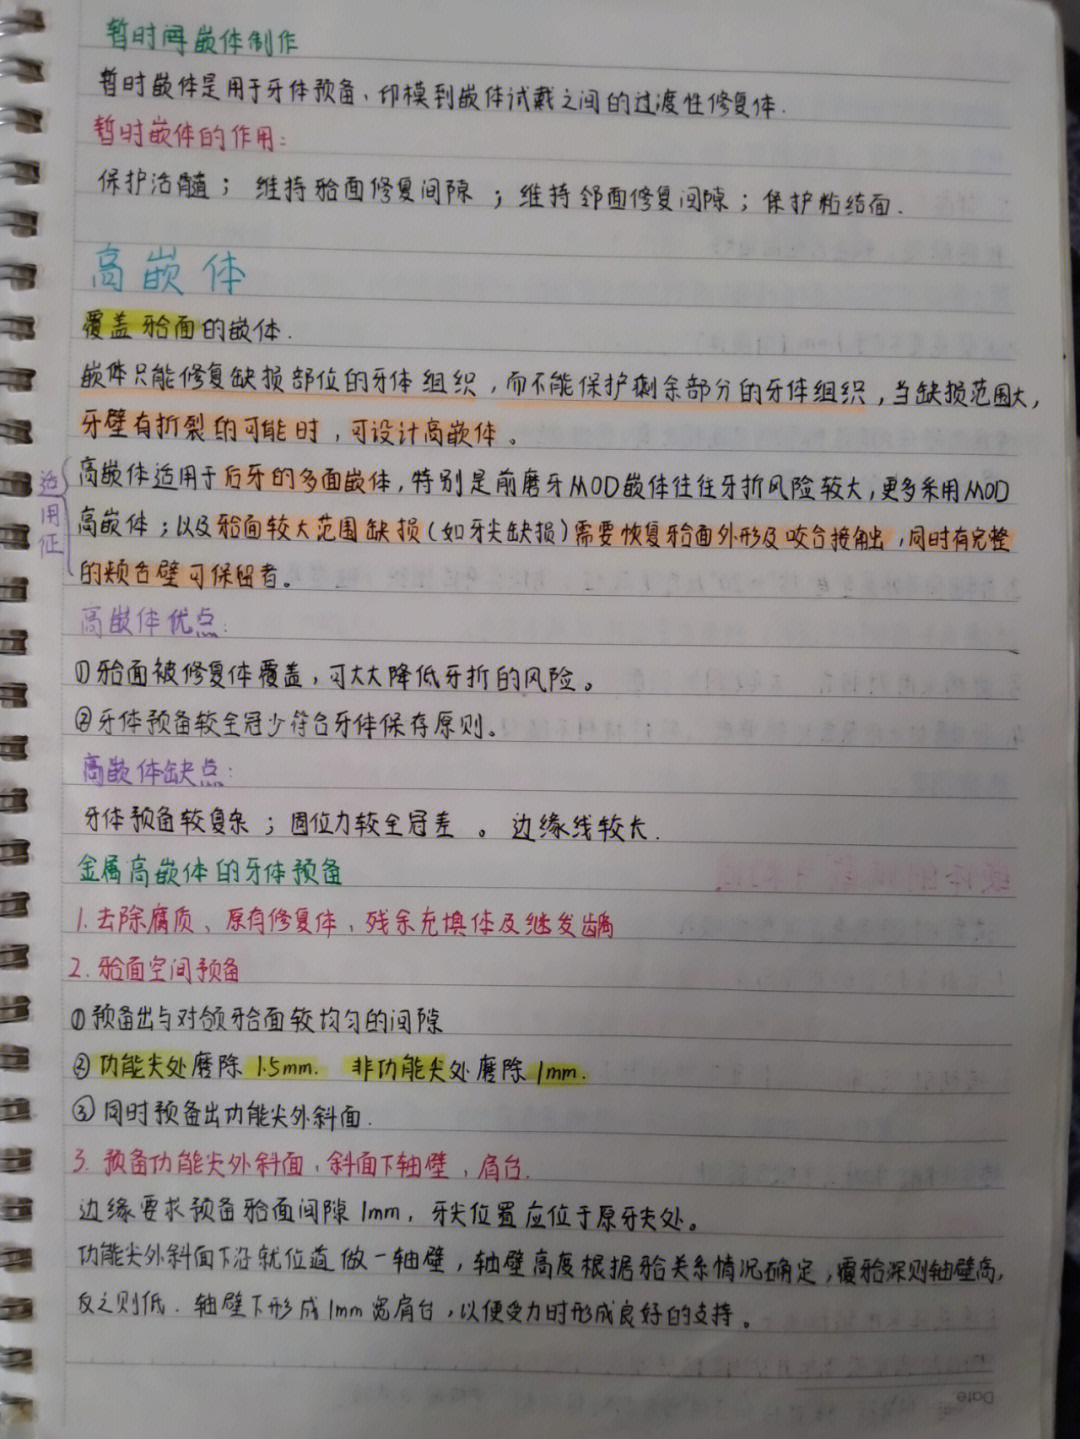 暂时嵌体制作
暂时嵌体是用于牙体预备、印模到嵌体试戴之间的过渡性修复体.
暂时嵌体的作用:
保护活髓； 维持𬌗面修复间隙 ；维持邻面修复间隙；保护粘结面.
高嵌体
覆盖𬌗面的嵌体.
嵌体只能修复缺损部位的牙体组织，而不能保护剩余部分的牙体组织，当缺损范围大，
牙壁有折裂的可能时，可设计高嵌体。
适用证
高嵌体适用于后牙的多面嵌体，特别是前磨牙MOD嵌体往往牙折风险较大，更多采用MOD
高嵌体；以及𬌗面较大范围缺损(如牙尖缺损)需要恢复𬌗面外形及咬合接触出，同时有完整
的颊舌壁可保留者。
高嵌体优点:
①𬌗面被修复体覆盖，可大大降低牙折的风险。
②牙体预备较全冠少符合牙体保存原则。
高嵌体缺点:
牙体预备较复杂；固位力较全冠差 。 边缘线较长.
金属高嵌体的牙体预备
1.去除腐质、原有修复体，残余充填体及继发龋
2.𬌗面空间预备
①预备出与对颌𬌗面较均匀的间隙
②功能尖处磨除1.5mm. 非功能尖处磨除1mm.
③同时预备出功能尖外斜面.
3. 预备功能尖外斜面，斜面下轴壁，肩台.
边缘要求预备𬌗面间隙1mm，牙尖位置应位于原牙尖处。
功能尖外斜面下沿就位道做一轴壁，轴壁高度根据𬌗关系情况确定，覆𬌗深则轴壁高，
反之则低. 轴壁下形成1mm宽肩台，以便受力时形成良好的支持。
Date